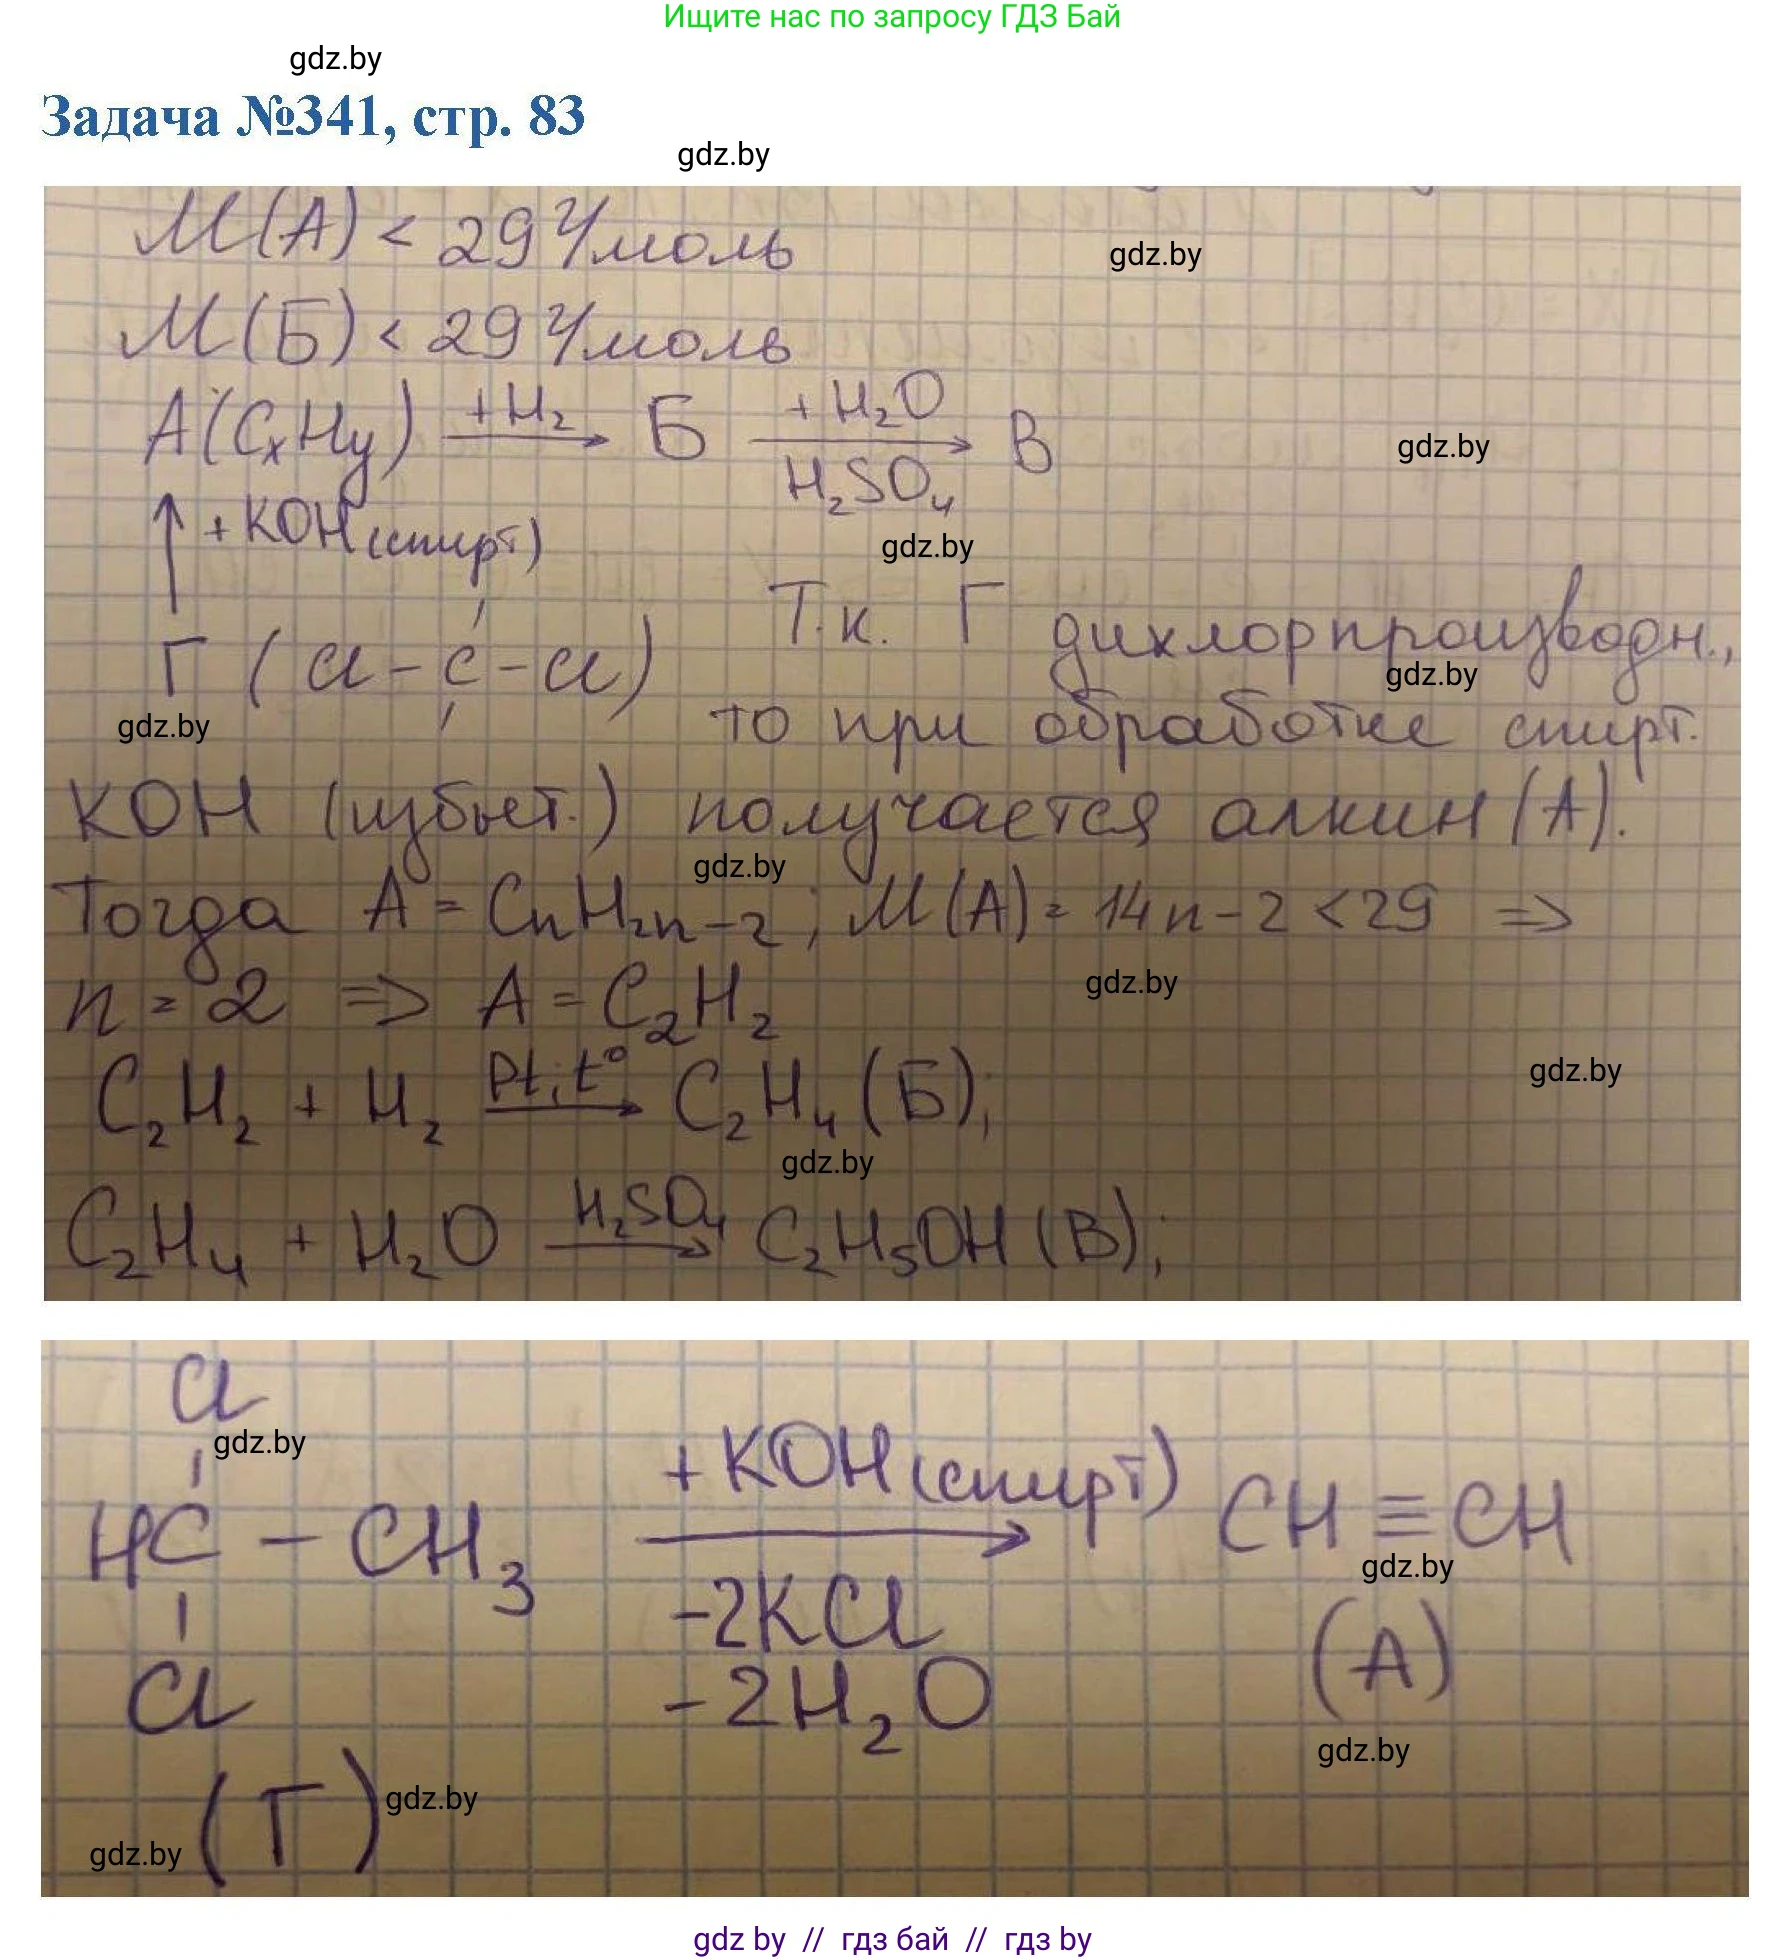 Ищите нас по запросу ГДЗ Бай
gdz.by
Задача №341, стр. 83
gdz.by
M(A) < 29 г/моль
gdz.by
M(Б) < 29 г/моль
A(CxHy) +H₂ → Б +H₂O → В
H₂SO₄
gdz.by
↑ +KOH(спирт)
gdz.by
Г (Cl-C-Cl)
Т.к. Г дихлорпроизводн.,
gdz.by
gdz.by
то при обработке спирт.
KOH (избыт.) получается алкин (A).
gdz.by
Тогда A = CnH2n-2; M(A) = 14n-2 < 29 =>
n = 2 => A = C₂H₂
gdz.by
C₂H₂ + H₂ Pt, t° → C₂H₄ (Б);
gdz.by
gdz.by
C₂H₄ + H₂O H₂SO₄ → C₂H₅OH (В);
Cl
gdz.by
HC - CH₃ +KOH(спирт) → CH ≡ CH
gdz.by
-2KCl
Cl
-2H₂O
(A)
gdz.by
(Г)
gdz.by
gdz.by
gdz by // гдз бай // гдз by